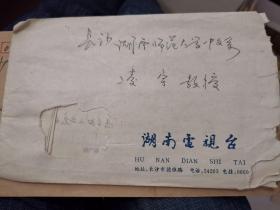 长沙湖南师范大学中文系
凌宇教授
湖南電視台
HU NAN DIAN SHI TAI
地址:长沙市德雅路 电话:24203 电挂:6660